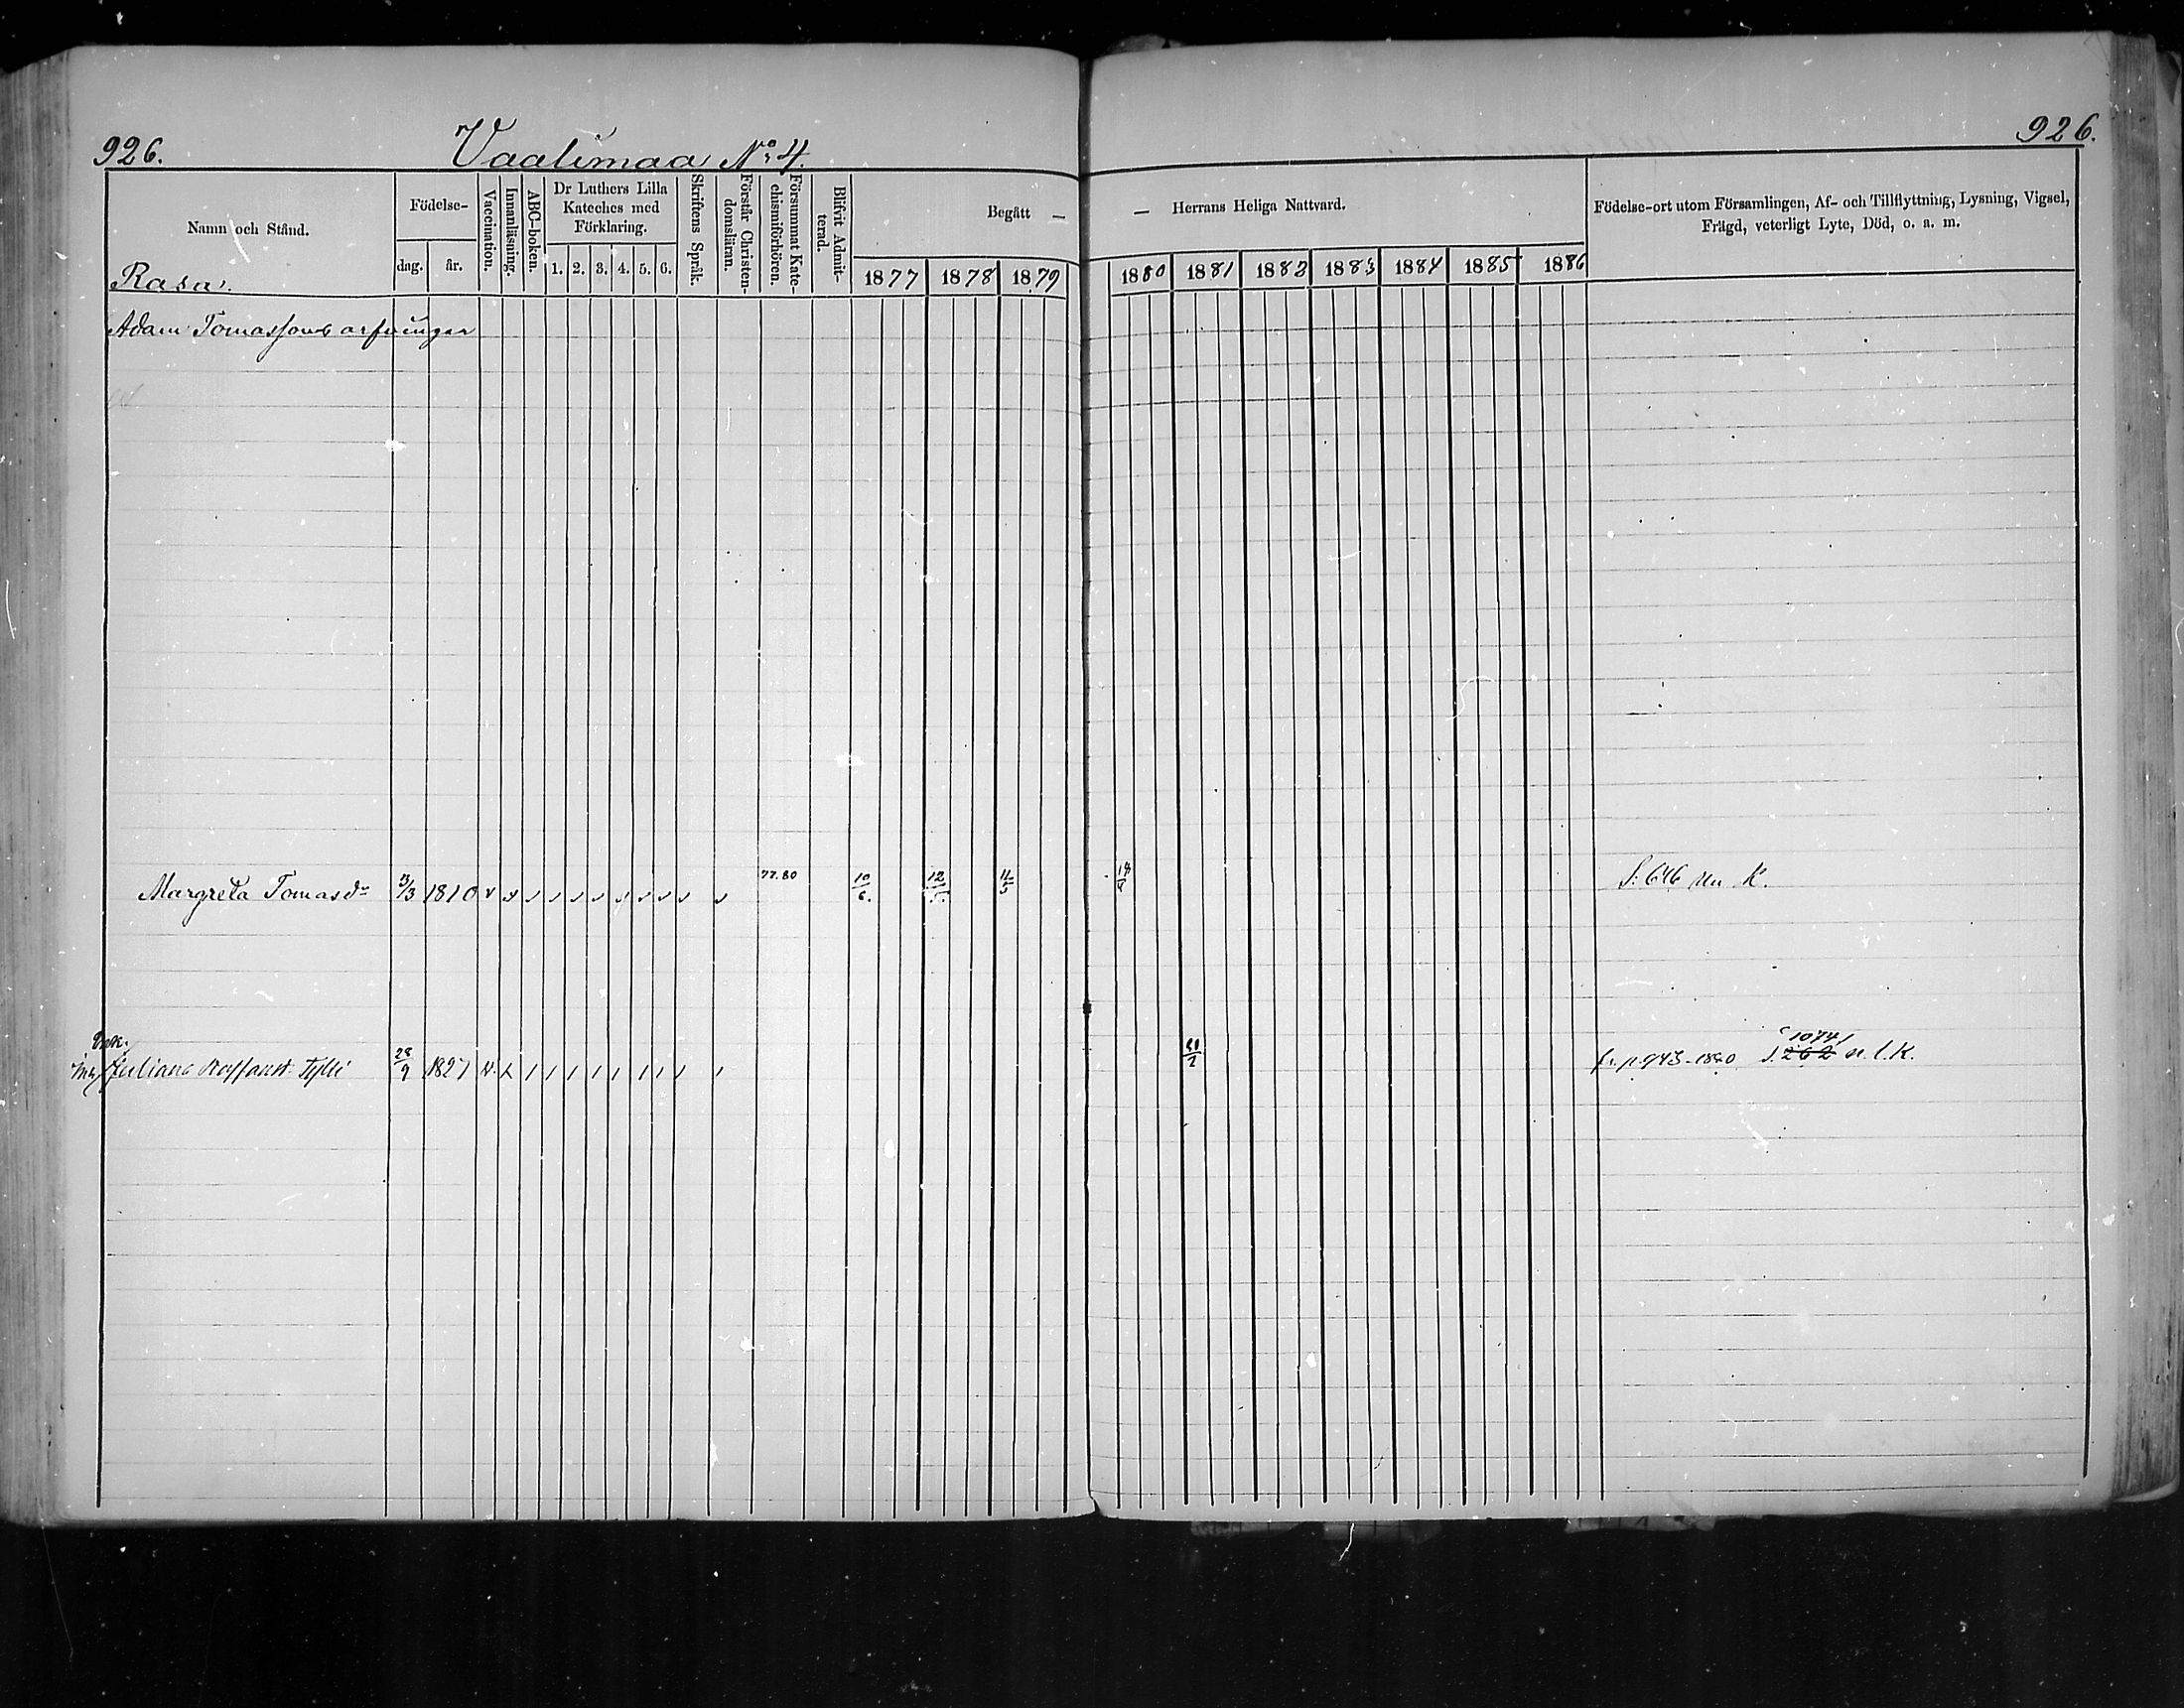 926.
Vaalimaa No 4.
926.
Namn och Stånd.
Födelse-
dag. år.
Vaccination.
Innanläsning.
ABC-boken.
Dr Luthers Lilla
Kateches med
Förklaring.
1. 2. 3. 4. 5. 6.
Skriftens Språk.
Förstår Christen-
domsläran.
Försummat Kate-
chismiförhören.
Blifvit Admit-
terad.
Begått —
— Herrans Heliga Nattvard.
1877 1878 1879 1880 1881 1882 1883 1884 1885 1886
Födelse-ort utom Församlingen, Af- och Tillflyttning, Lysning, Vigsel,
Frägd, veterligt Lyte, Död, o. a. m.
Rasa.
Adam Tomassons arfvingar
Margreta Tomasdr 1810 77.80 10/6. 12 11/5 S. 646 nu K.
Enk.
Juliana Tylli 28/9 1827 fr. p. 943-1880 S. 262 n. l. K.
1074